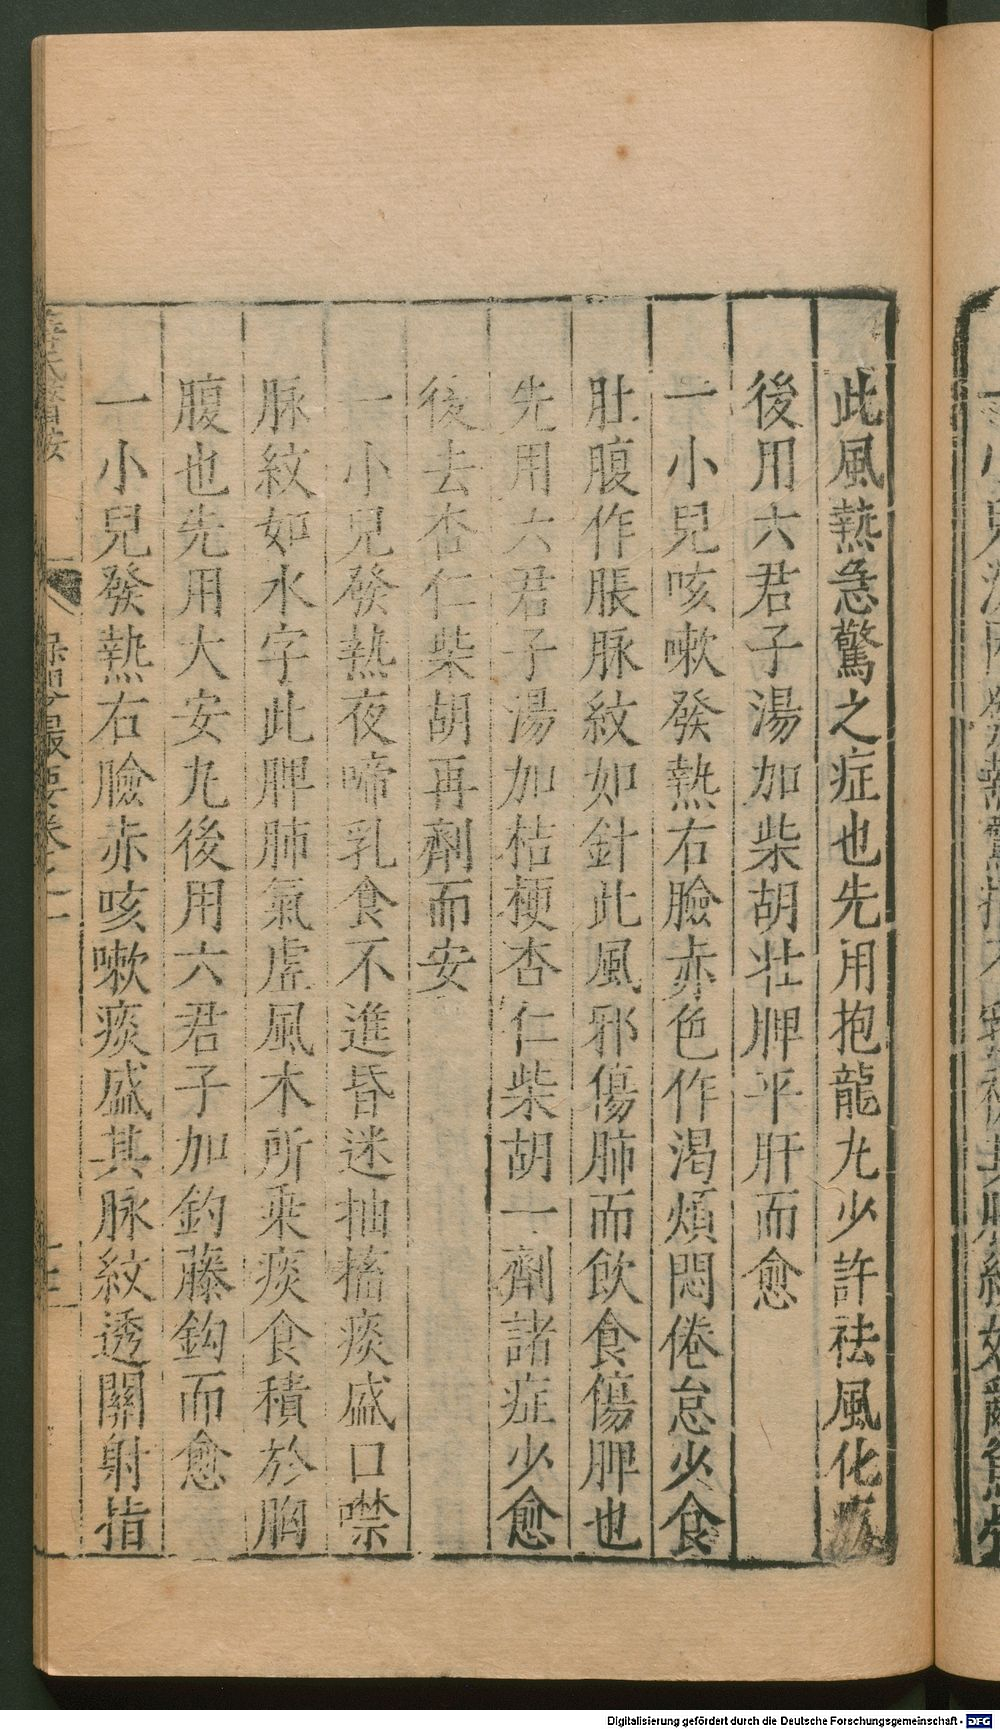 此風熱急驚之症也先用抱龍丸少許祛風化痰
後用六君子湯加柴胡壯脾平肝而愈
一小兒咳嗽發熱右臉赤色作渴煩悶倦怠少食
肚腹作脹脉紋如針此風邪傷肺而飲食傷脾也
先用六君子湯加桔梗杏仁柴胡一劑諸症少愈
後去杏仁柴胡再劑而安
一小兒發熱夜啼乳食不進昏迷抽搐痰盛口噤
脉紋如水字此脾肺氣虛風木所乘痰食積於胸
腹也先用大安丸後用六君子加釣藤鈎而愈
一小兒發熱右臉赤咳嗽痰盛其脉紋透關射指
保嬰撮要卷之一
Digitalisierung gefördert durch die Deutsche Forschungsgemeinschaft - DFG